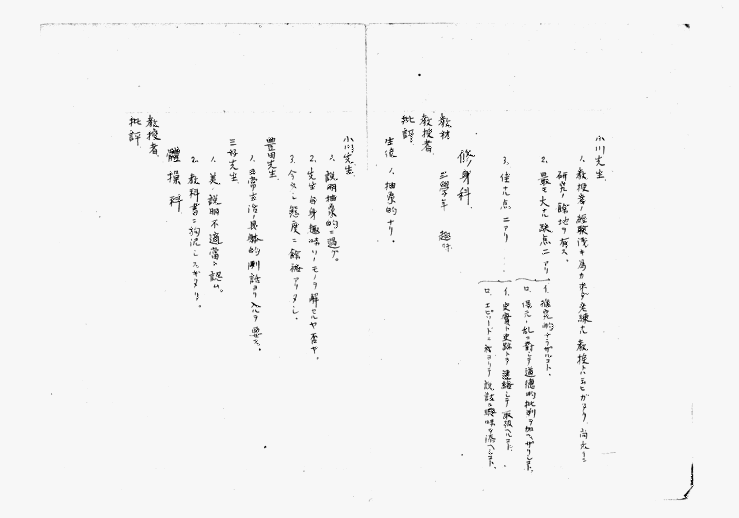 小川先生.
1. 教授者ノ経験浅キ為カ未ダ老練ナル教授トハ云ヒガタク 尚大ニ
研究ノ餘地ヲ有ス.
2. 最モ大ナル缺点ニアリ
イ. 探究的ナラザルコト.
ロ. 保元ノ乱ニ對シテ道德的批判ヲ加ヘザリシコト.
3. 佳ナル点 ニアリ
イ. 史實ト史蹟トヲ連絡シテ取扱ヘルコト.
ロ. エピソードニ就テ説話ニ興味ヲ添ヘシコト.
修身科.
教材 三學年 趣味
教授者
批評.
生徒 1. 抽象的ナリ.
小川先生.
1. 説明抽象的ニ過グ.
2. 先生自身趣味ソノモノヲ解セルヤ否ヤ.
3. 今少シ態度ニ餘裕アリタシ.
豊田先生.
1. 日常生活ノ具体的例話ヨリ入ルヲ要ス.
三好先生.
1. 美ノ説明不適當ト認ム.
2. 教科書ニ拘泥シスギタリ.
體操科
教授者
批評.